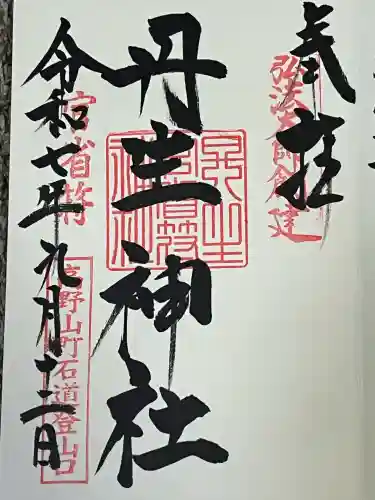 奉拝
弘法大師創建
丹生神社
丹生官省符神社
官省符
令和七年九月十二日
高野山町石道登山口